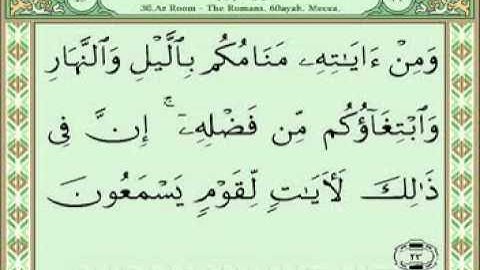 30.Ar Room - The Romans. 60ayah. Mecca.
وَمِنْ ءَايَـٰتِهِۦ مَنَامُكُم بِٱلَّيْلِ وَٱلنَّهَارِ
وَٱبْتِغَآؤُكُم مِّن فَضْلِهِۦٓ ۚ إِنَّ فِى
ذَٰلِكَ لَـَٔايَـٰتٍ لِّقَوْمٍ يَسْمَعُونَ
٢٣